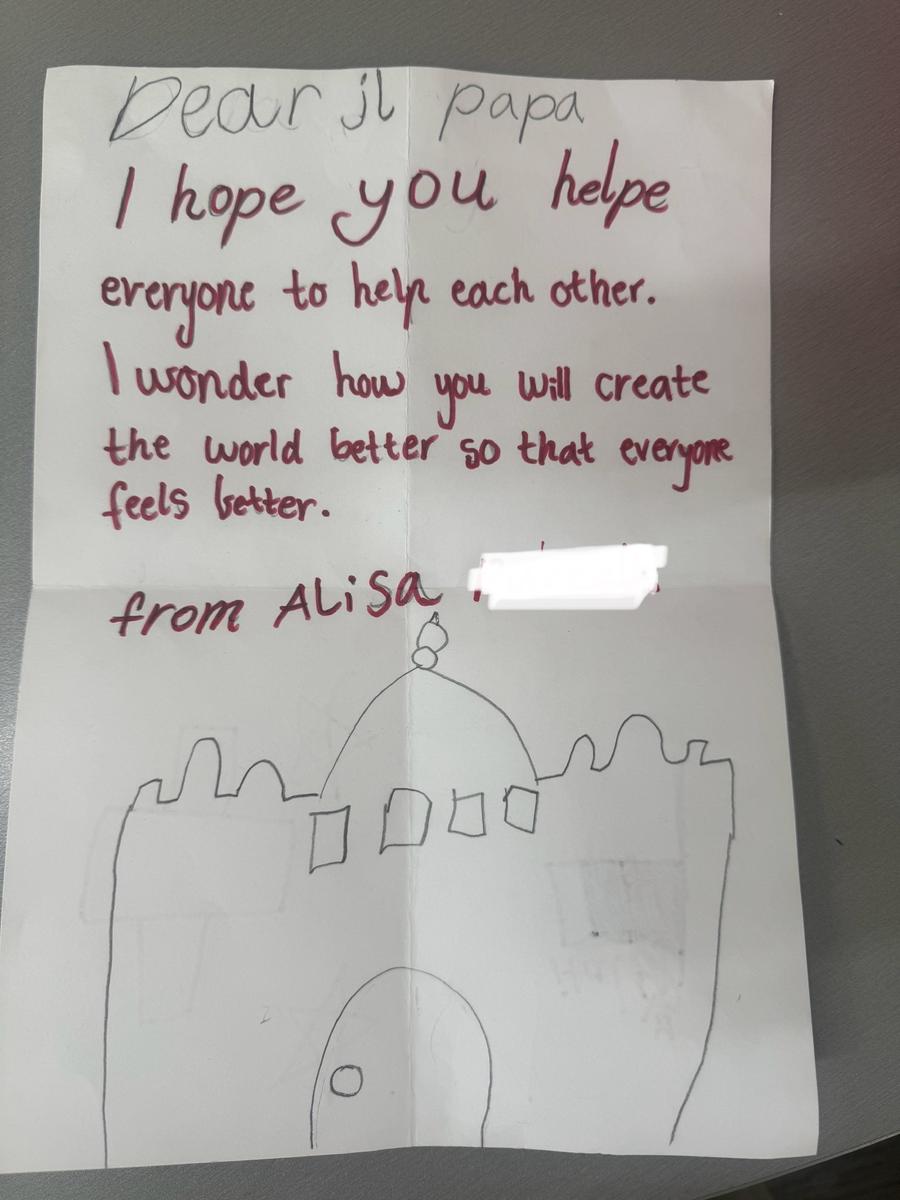 Dear il papa
I hope you helpe
everyone to help each other.
I wonder how you will create
the world better so that everyone
feels better.
from ALiSa